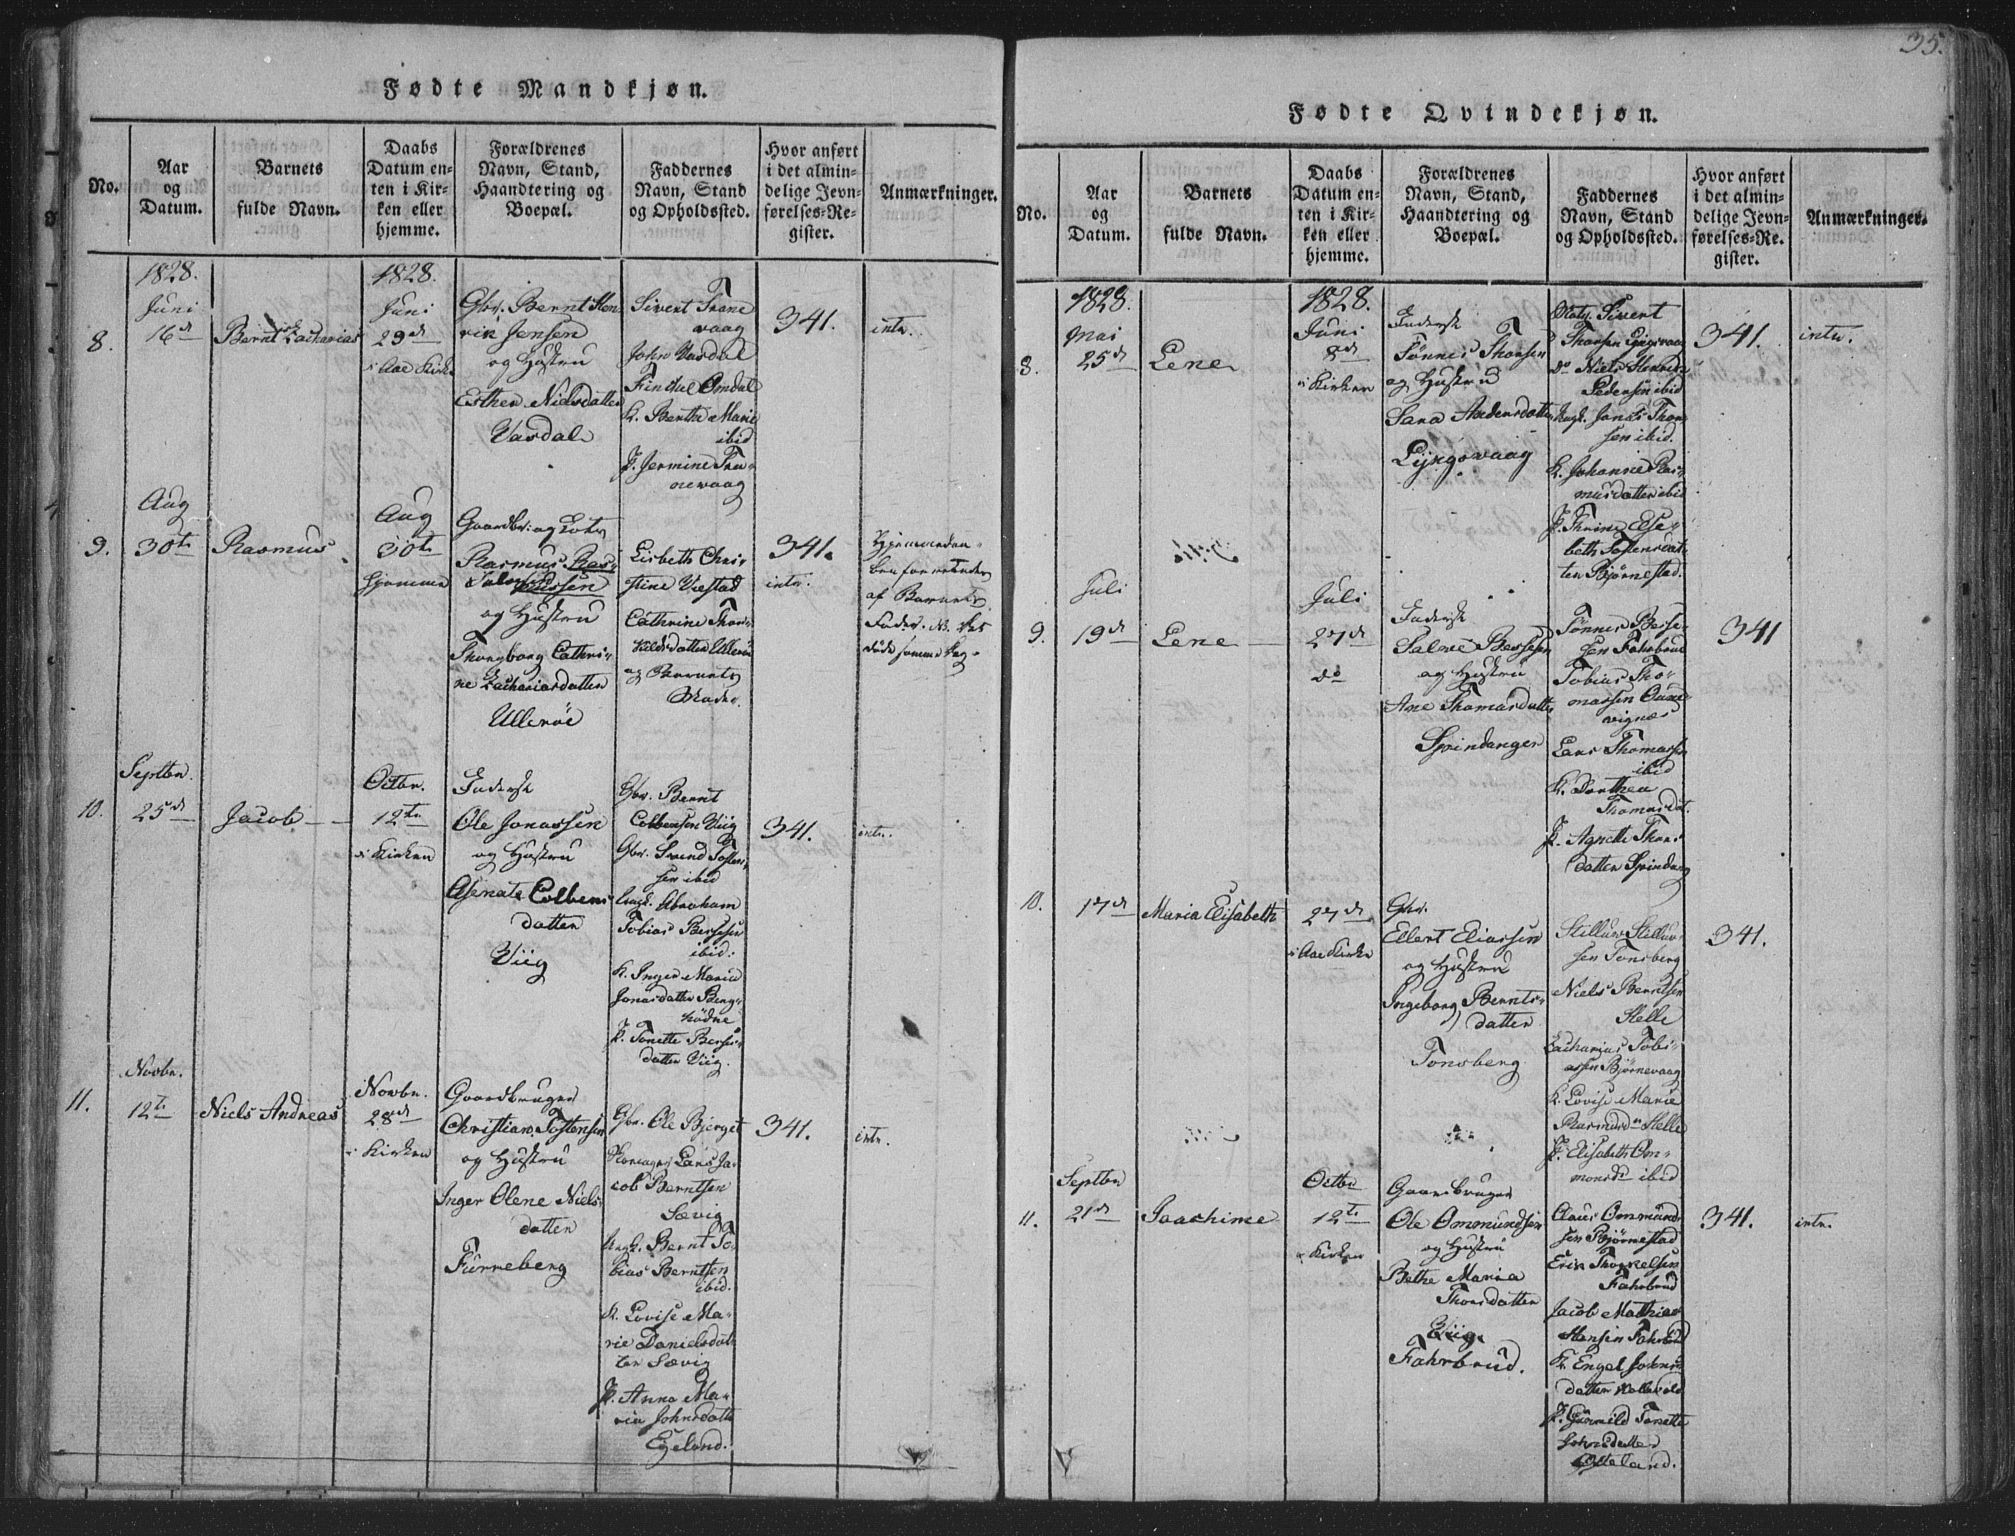 35.
Fødte Mandkjøn.
No.
Aar
og
Datum.
Barnets
fulde Navn.
Daabs
Datum en-
ten i Kir-
ken eller
hjemme.
Forældrenes
Navn, Stand,
Haandtering og
Boepæl.
Faddernes
Navn, Stand
og Opholdssted.
Hvor anført
i det almin-
delige Jevn-
førelses-Re-
gister.
Anmærkninger.
8.
1828.
Juni
16d
1828.
Juni
29d
i Aae Kirke
Gbr. Bernt Hen-
rik Jensen
og Hustru
Esther Nielsdatter
Vasdal
Sivert Trane
vaag
John Vasdal
Omdal
K. Berthe Marie
ibid
P. Jermine Tra-
nevaag
341.
intr.
9.
Aug
30te
Rasmus
Aug
30te
hjemme
Gaardbr. og Lots
Rasmus
og Hustru
Thorgborg Cathri-
ne Zachariasdatter
Ullerøe
Lisbeth Chri-
stine
Cathrine Thor-
kildsdatter Ullerøe
og Barnets
Moder.
341.
intr.
af Barnets
Fader.
10.
Septbr.
25d
Jacob
Octbr.
12te
i Kirken
Inderst
Ole Jonassen
og Hustru
Asenate Colbens
datter
Viig
Gbr. Bernt
Colbensen Viig
Gbr. Svend Tosten-
sen ibid
Ungk. Abraham
Tobias Bersesen
ibid.
K. Inger Maria
Jonasdatter Berg-
hødne
P. Tonette Berses-
datter Viig.
341.
intr.
11.
Novbr.
12te
Niels Andreas
Novbr.
28d
i Kirken
Gaardbruger
Christian Tostensen
og Hustru
Inger Olene Niels-
datter
Furreberg
Gbr. Ole Bjerget
Lars Ja-
cob Berntsen
Sævig
Ungk. Bernt To-
bias Berntsen
ibid.
K. Lovise Ma-
rie Danielsdat-
ter Sævig
P. Anna Ma-
ria Johnsdatter
Egeland.
341.
intr.
Fødte Qvindekjøn.
No.
Aar
og
Datum.
Barnets
fulde Navn.
Daabs
Datum en-
ten i Kir-
ken eller
hjemme.
Forældrenes
Navn, Stand,
Haandtering og
Boepæl.
Faddernes
Navn, Stand
og Opholdssted.
Hvor anført
i det almin-
delige Jevn-
førelses-Re-
gister.
Anmærkninger.
8.
1828.
Mai
25d
Lene
1828.
Juni
8d
i Kirken
Inderst
Tønnes Thorsen
og Hustru
Sara Andersdatter
Lyngsvaag
Sivert
Thorsen Lyngsvaag
do Niels Henrik
Pedersen ibid
Ungk. Jonas Thor-
sen ibid.
K. Johanne Ras-
musdatter ibid
P. Thrine Else-
beth Tostensdat-
ter Bjørnestad.
341.
intr.
9.
Juli
19d
Lene
Juli
27d
do
Inderst
Salve Bersesen
og Hustru
Ane Thomasdatter
Spindanger
Tønnes Berse-
sen Fahrbrud
Tobias Tho-
massen
vignæs
Lars Thomassen
ibid
K. Dorthea
Thomasdat.
P. Agnethe Thors-
datter Spindang
341
10.
17d
Maria Elisabeth
27d
i Aae Kirke
Gbr.
Ellert Eliassen
og Hustru
Ingeborg Bernts-
datter
Tonsberg
Tonsberg
Niels Berntsen
Stelle
Zacharias Tobi-
assen Bjørnevaag
K. Lovise Marie
Rasmusd. Stelle
P. Elisabeth Om-
monsd. ibid
341.
11.
Septbr
21d
Joachime
Octbr
12te
i Kirken
Gaardbruger
Ole Ommundsen
og Hustru
Bethe Maria
Thorsdatter
Viig.
Fahrbrud.
Claus Ommund-
sen Bjørnestad
Erik Thorkelsen
Fahrbrud
Jacob Mathias
Hansen Fahrbrud
K. Engel
datter
P. Gunnild Tonette
341.
intr.